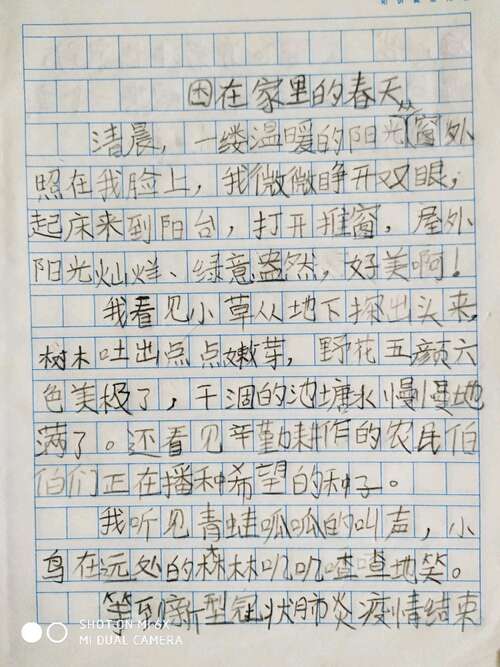 因在家里的春天
清晨，一缕温暖的阳光从窗外
照在我脸上，我微微睁开双眼，
起床来到阳台，打开推窗，屋外
阳光灿烂、绿意盎然，好美啊！
我看见小草从地下探出头来，
树木吐出点点嫩芽，野花五颜六
色美极了，干涸的池塘水慢慢地
满了。还看见辛勤耕作的农民伯
伯们正在播种希望的种子。
我听见青蛙呱呱的叫声，小
鸟在远处的森林叽叽喳喳地笑。
等到新型冠状肺炎疫情结束
SHOT ON MI 6X
MI DUAL CAMERA